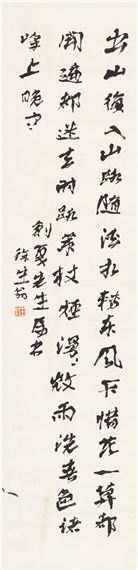 出山復入山路隨溪水轉東風不惜花一暮都
開遍却迷去時路策杖煙漫漫微雨洗春色諸
峰上晚寒
先生屬書
徐生翁